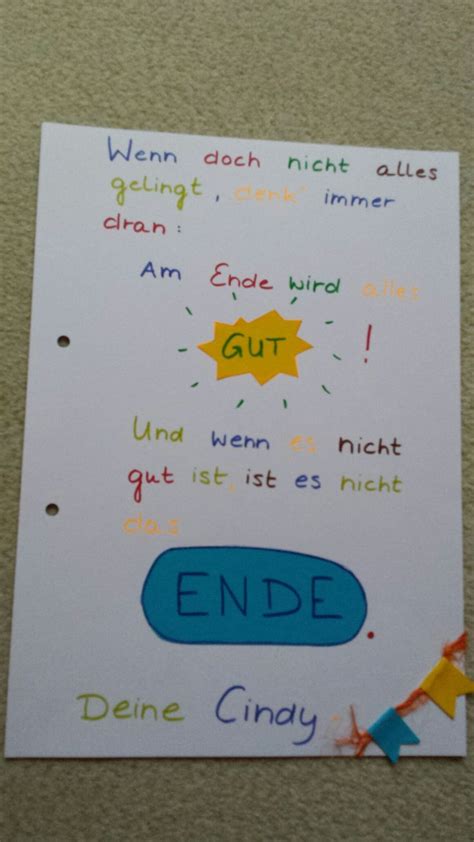 Wenn doch nicht alles
gelingt, denk' immer
dran:
Am Ende wird alles
GUT !
Und wenn es nicht
gut ist, ist es nicht
das
ENDE.
Deine Cindy